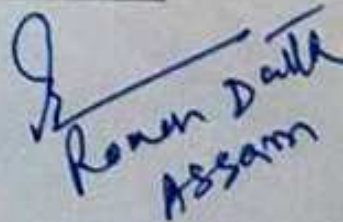 Romen Dutta
Assam